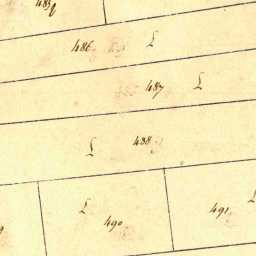 486 L
487 L
L 488
L
490
491